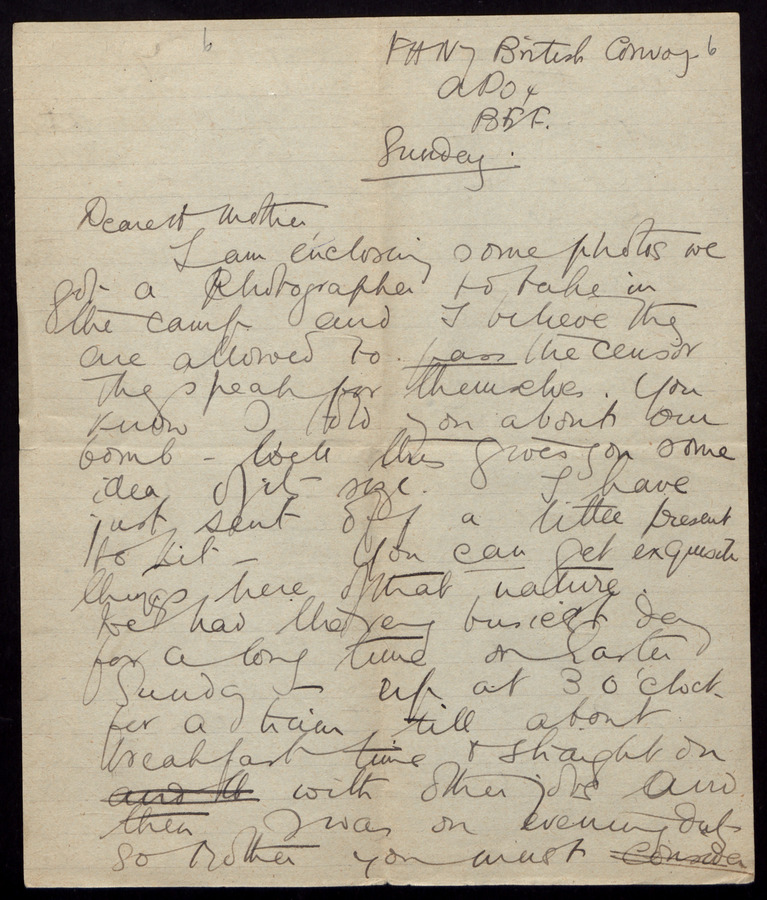 6
FANY British Convoy 6
APO 4
BEF.
Sunday.
Dearest Mother
I am enclosing some photos we
got a Photographer to take in
the camp and I believe they
are allowed to pass the censor
They speak for themselves. You
know I told you about our
bomb - well this gives you some
idea of its size. I have
just sent off a little present
to Kit - You can get exquisite
things here of that nature.
We had the very busiest day
for a long time on Easter
Sunday - up at 3 o'clock
for a train till about
breakfast time & straight on
and with other jobs and
then I was on evening duty
so Mother you must consider